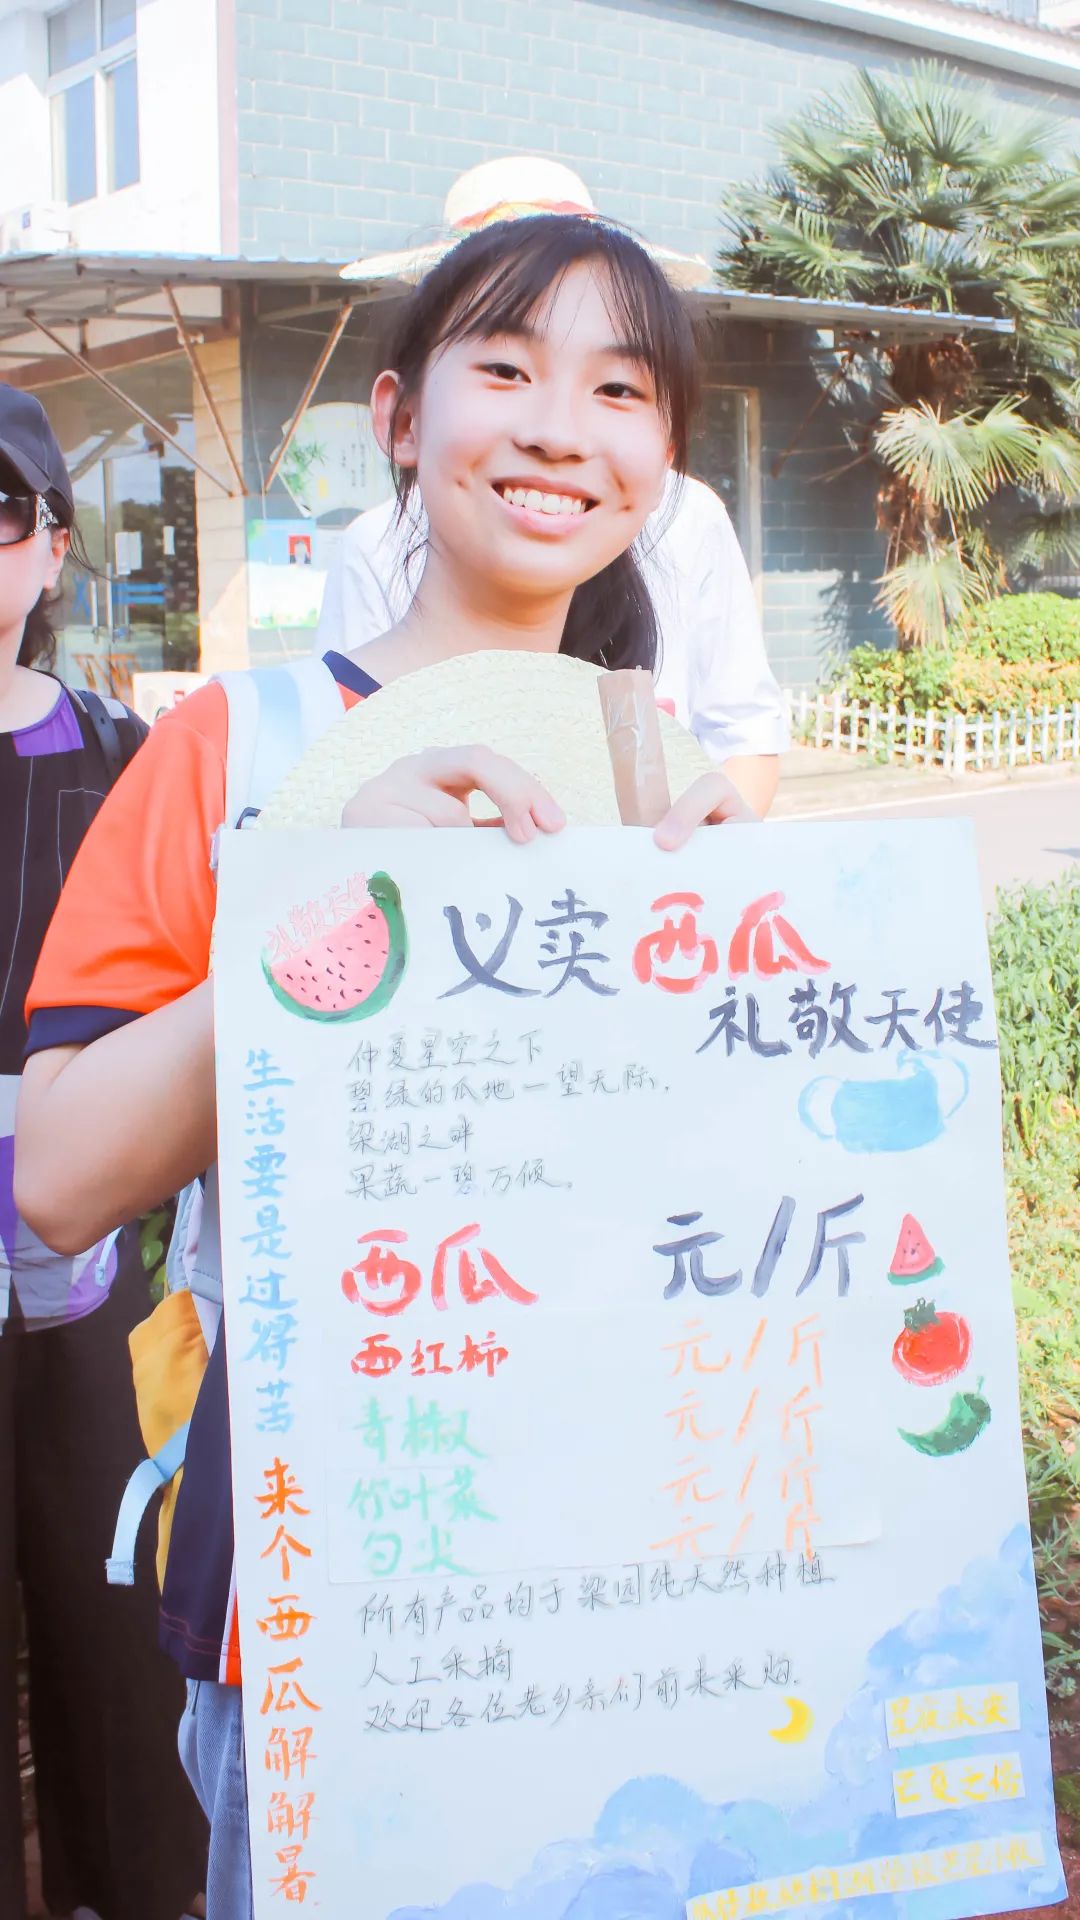 礼敬天使
义卖西瓜
礼敬天使
仲夏星空之下
碧绿的瓜地一望无际.
梁湖之畔
果蔬一碧万倾。
生活要是过得苦
来个西瓜解解暑.
西瓜 元/斤
西红柿 元/斤
青椒 元/斤
竹叶菜 元/斤
勾尖 元/斤
所有产品均于梁园纯天然种植
人工采摘
欢迎各位老乡亲们前来采购.